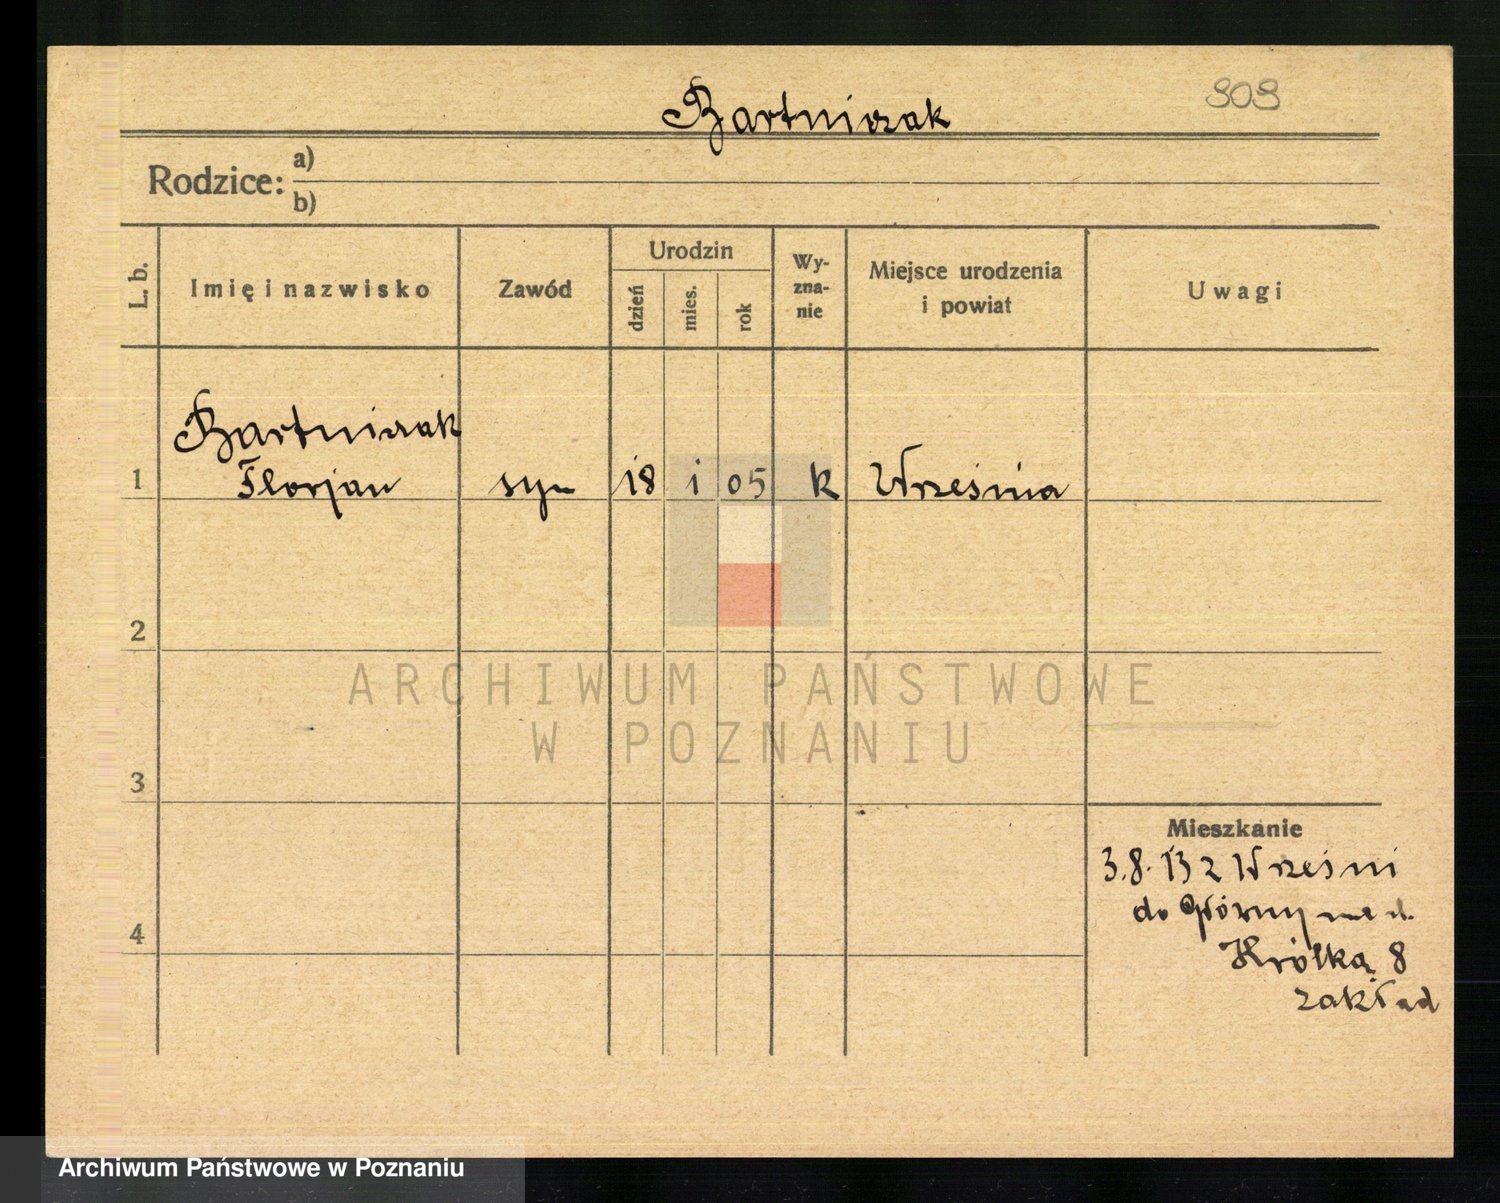 909
Bartniczak
Rodzice: a)
b)
L. b.
Imię i nazwisko
Zawód
Urodzin
dzień
mies.
rok
Wy-
zna-
nie
Miejsce urodzenia
i powiat
Uwagi
Bartniczak
1 Florjan syn 18 1 05 k Września
2
3
4
Mieszkanie
3.8.13 z Wrześni
do
Królka 8
zakład
ARCHIWUM PAŃSTWOWE
W POZNANIU
Archiwum Państwowe w Poznaniu